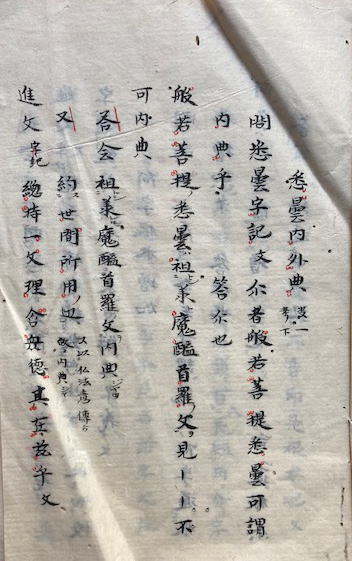 悉曇内外典
問悉曇字記文尓者般若菩提悉曇可謂
内典乎 答尓也
般若菩提悉曇祖承魔醯首羅文見ーー不
可内典
答会祖承魔醯首羅文内典
又約世間所用也
進文字記 総持一文理含衆徳其在茲乎文